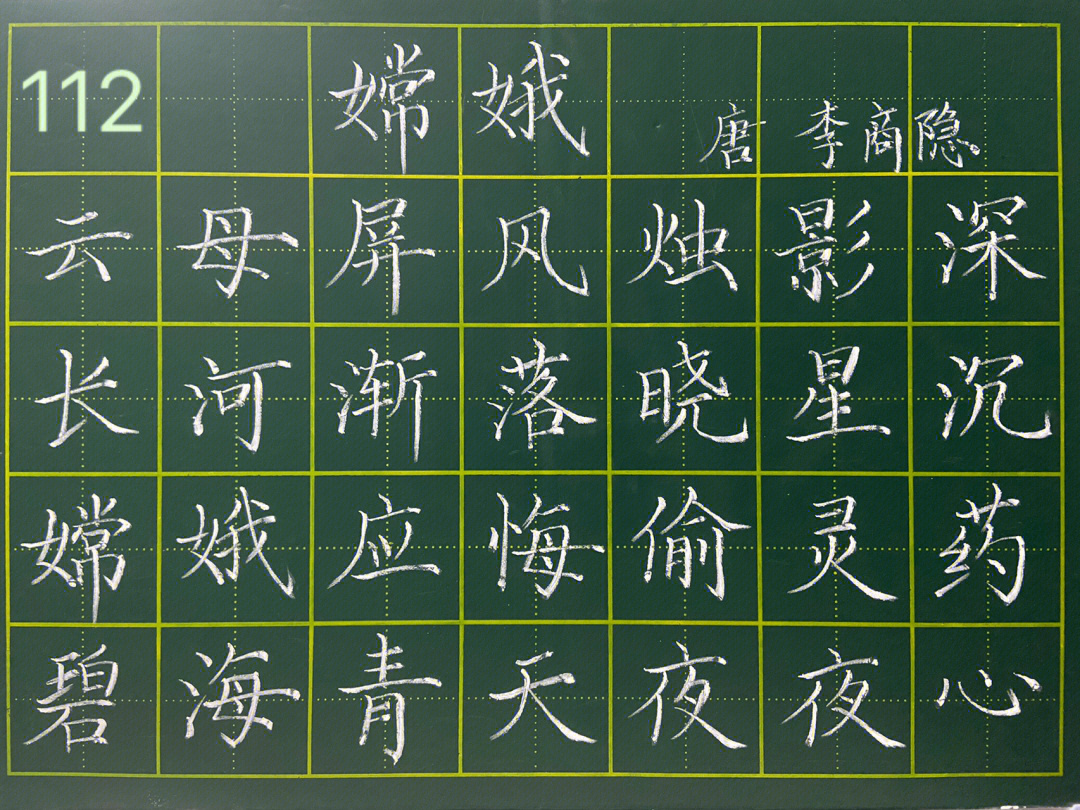 112 嫦娥 唐 李商隐
云母屏风烛影深
长河渐落晓星沉
嫦娥应悔偷灵药
碧海青天夜夜心